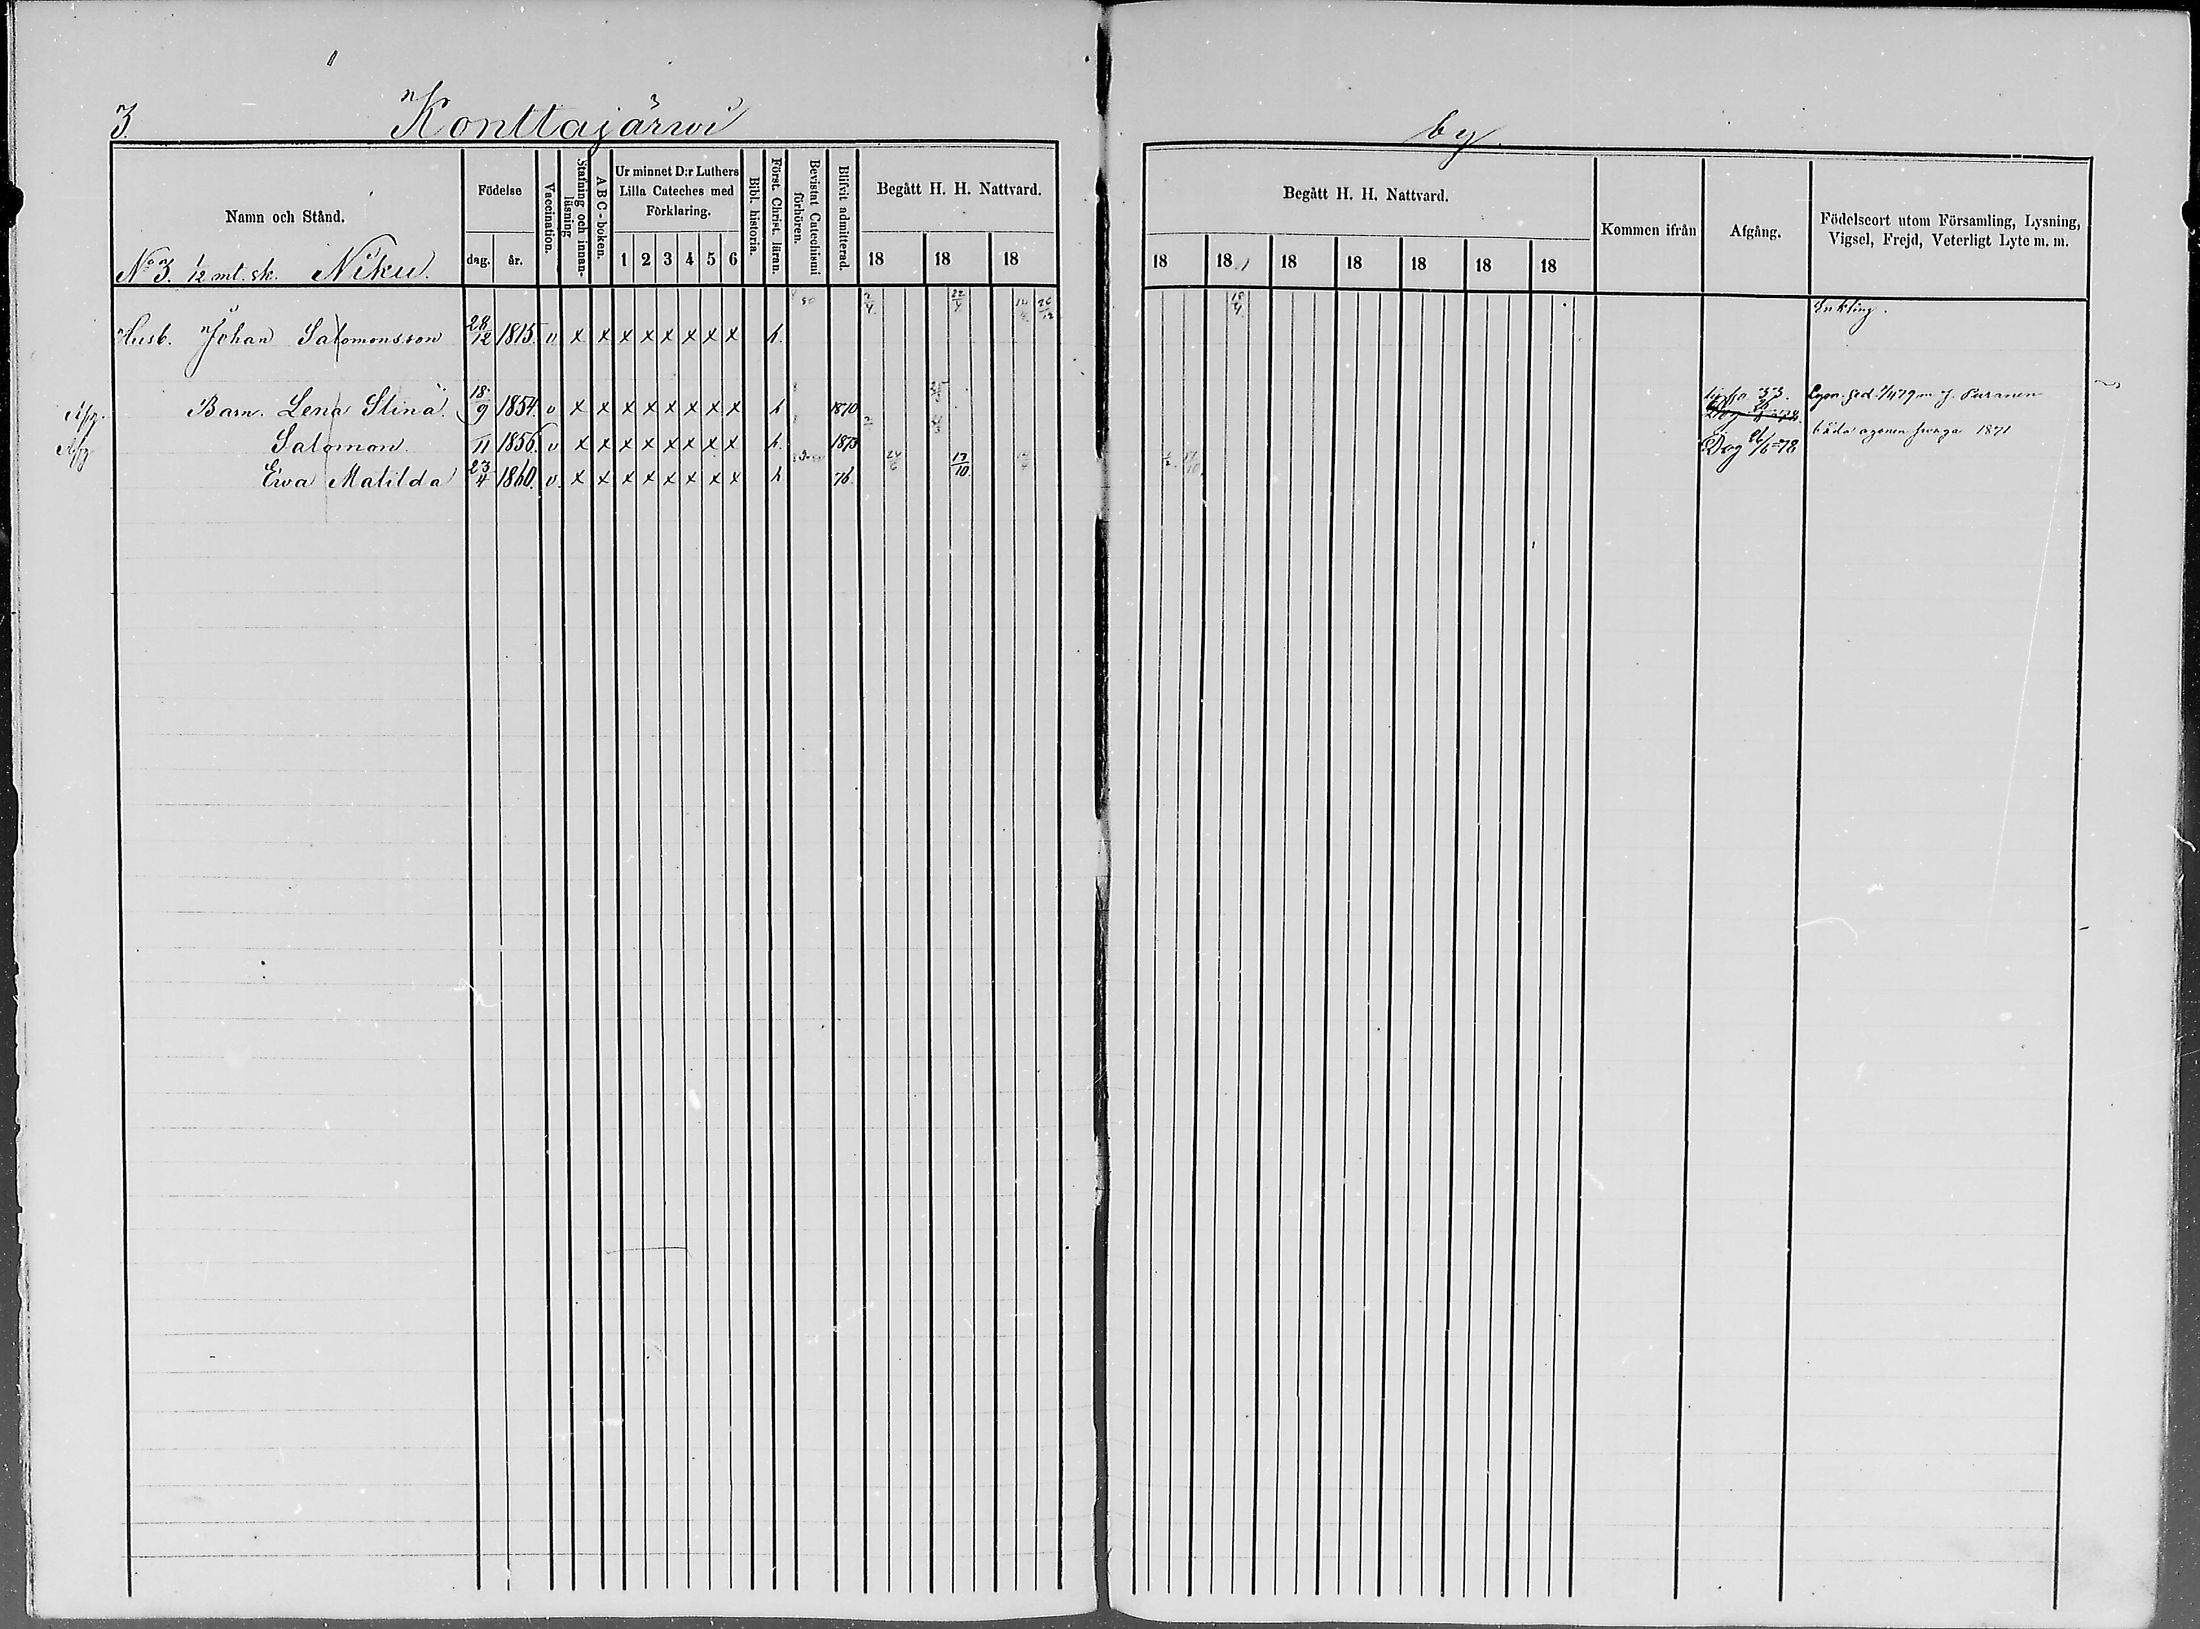 3.
Konttajärwi
by
Namn och Stånd.
Födelse
dag.
år.
Vaccination.
Stafning och innan-läsning
ABC-boken.
Ur minnet D:r Luthers Lilla Cateches med Förklaring.
1 2 3 4 5 6
Bibl. historia.
Först. Christ. läran.
Bevistat Catechismi förhören.
Blifvit admitterad.
Begått H. H. Nattvard.
18 18 18
Begått H. H. Nattvard.
18 18 18 18 18 18 18
Kommen ifrån
Afgång.
Födelseort utom Församling, Lysning, Vigsel, Frejd, Veterligt Lyte m. m.
No 3. 1/2 mt. sk. Niku.
Husb. Johan Salomonsson 28/12 1815. v x x x x x x x x h. 2/4 22/4 18/4 Enkling.
Afg. Barn. Lena Stina 18/9 1854. v x x x x x x x x h 1870
Afg. Salomon 11 1856. v x x x x x x x x h. 1873 Dog 26/6 78
Ewa Matilda 23/4 1860. v. x x x x x x x x h 76. 24/6 13/10